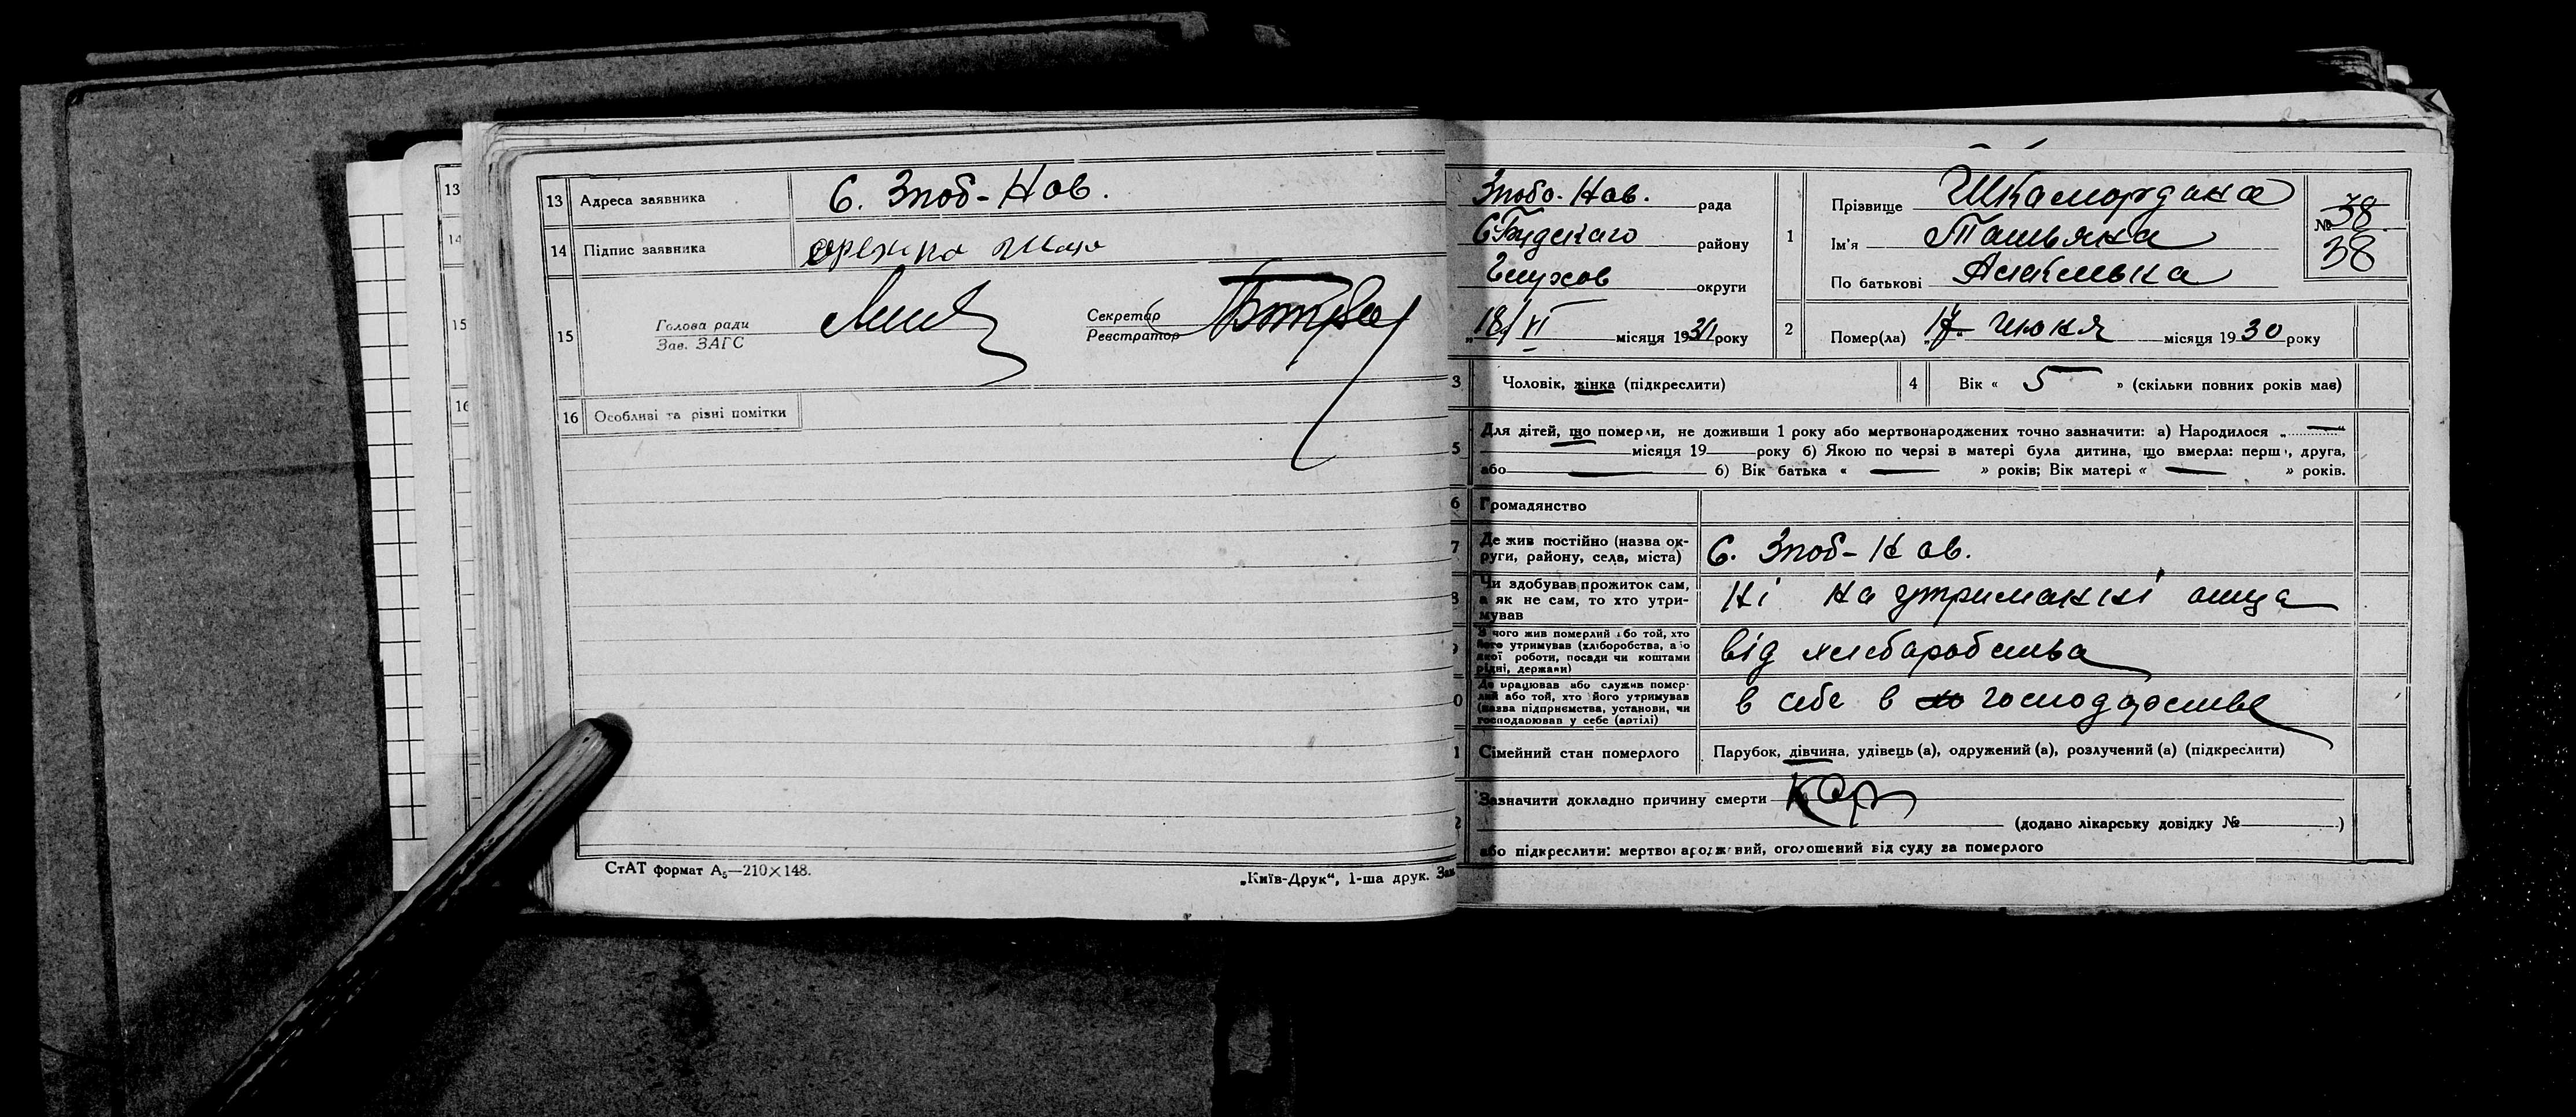 13 Адреса заявника С. Зноб-Нов.
14 Підпис заявника
15 Голова ради
Зав. ЗАГС
Секретар
Реєстратор
16 Особливі та різні помітки
СтАТ формат А₅—210×148.
„Київ-Друк“, 1-ша друк. Зам
Знобо-Нов. рада
С Будскаго району
Глухов округи
„18/VI місяця 1930 року
1 Прізвище
Ім'я Татьяна
По батькові
№ 38
38
2 Помер(ла) „17„ июня місяця 1930 року
3 Чоловік, жінка (підкреслити)
4 Вік « 5 » (скільки повних років мав)
5 Для дітей, що померли, не доживши 1 року або мертвонароджених точно зазначити: а) Народилося „
місяця 19 року б) Якою по черзі в матері була дитина, що вмерла: перша, друга,
або б) Вік батька « » років; Вік матері « » років.
6 Громадянство
7 Де жив постійно (назва ок-
руги, району, села, міста) С. Зноб-Нов.
8 Чи здобував прожиток сам,
а як не сам, то хто утри-
мував Ні на утриманні отца
З чого жив померлий або той, хто
його утримував (хліборобства, або
якої роботи, посади чи коштами
рідні, держави) від хлеборобства
0 Де працював або служив помер-
лий або той, хто його утримував
(назва підприємства, установи, чи
господарював у себе (артілі) в себе в господарстве
1 Сімейний стан померлого Парубок, дівчина, удівець (а), одружений (а), розлучений (а) (підкреслити)
Зазначити докладно причину смерти Кор
2 (додано лікарську довідку № )
або підкреслити: мертвонароджений, оголошений від суду за померлого